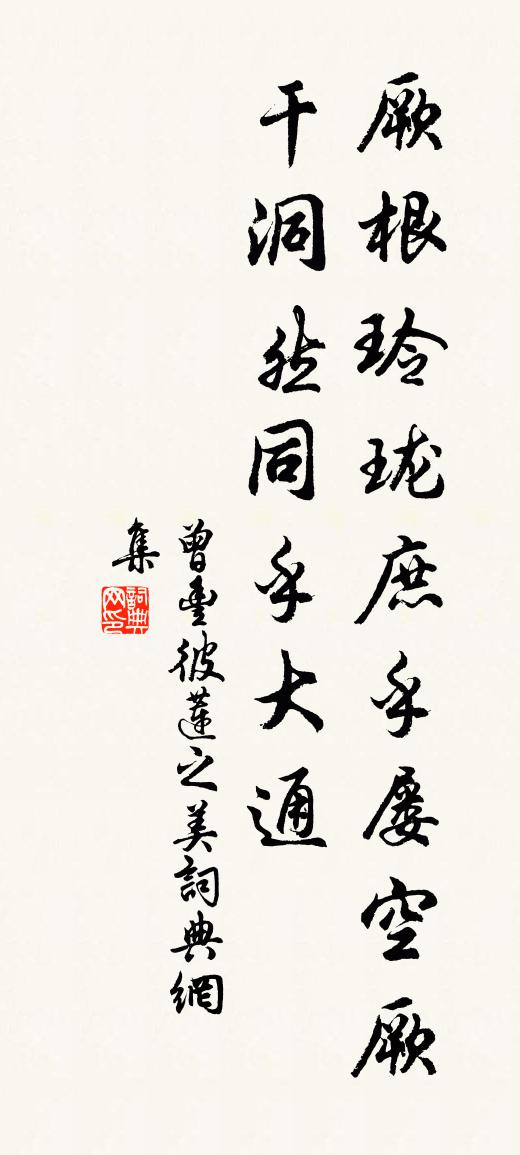 厥根玲珑庶乎屡空厥
干洞然同乎大通
曾豊彼莲之美詞典網
集
詞典
网印